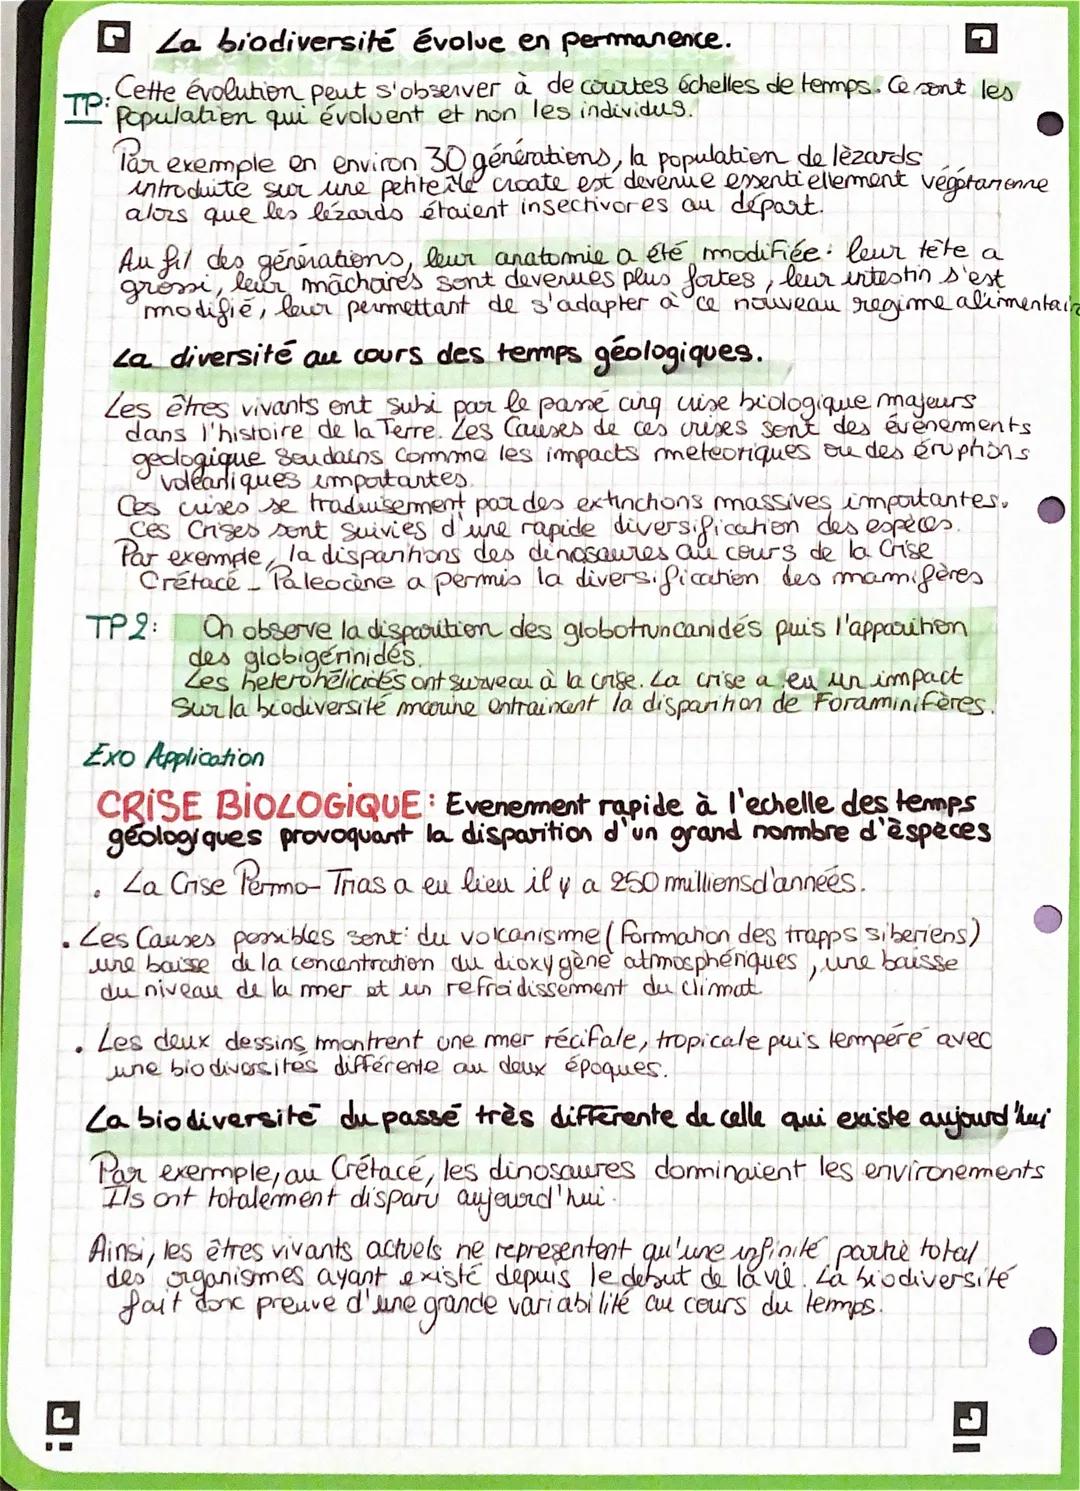 La biodiversité évolue en permanence.
TP: Cette évolution peut s'observer à de courtes échelles de temps. Ce sont les
Population qui évoluent et non les individus.
Par exemple en environ 30 générations, la population de lèzards
introduite sur une petite île croate est devenue essentiellement végétarienne
alors que les lézards étaient insectivores au départ.
Au fil des générations, leur anatomie a été modifiée: leur tête a
grossi, leur mâchoires sont devenues plus fortes, leur intestin s'est
modifié, leur permettant de s'adapter à ce nouveau regime alimentair
La diversité au cours des temps géologiques.
Les êtres vivants ont subi par le passé cinq crise biologique majeurs
dans l'histoire de la Terre. Les Causes de ces crises sont des évenements
geologique soudains comme les impacts meteoriques ou des éruptions
volcaniques importantes.
Ces crises se traduisement par des extinctions massives importantes.
Ces Crises sont suivies d'une rapide diversification des espèces.
Par exemple, la disparitions des dinosaures au cours de la Crise
Crétacé - Paleocène a permis la diversification des mammifères
TP2: On observe la disparition des globotruncanidés puis l'apparition
des globigérinidés.
Les heterohélicidés ont surveçu à la crise. La crise a eu un impact
Sur la biodiversité marine entrainant la disparition de Foraminifères.
Exo Application
CRISE BIOLOGIQUE: Evenement rapide à l'echelle des temps
géologiques provoquant la disparition d'un grand nombre d'èspèces
. La Crise Permo-Trias a eu lieu il y a 250 millions d'années.
. Les Causes possibles sont: du volcanisme (formation des trapps siberiens)
une baisse de la concentration du dioxygène atmosphériques, une baisse
du niveau de la mer et un refroidissement du climat
. Les deux dessins montrent une mer récifale, tropicale puis tempéré avec
une biodiversités différente au deux époques.
La biodiversité du passé très différente de celle qui existe aujourd'hui
Par exemple, au Crétacé, les dinosaures dominaient les environements
Ils ont totalement disparu aujourd'hui.
Ainsi, les êtres vivants actuels ne representent qu'une infinité partie total
des organismes ayant existé depuis le debut de la vie. La biodiversité
fait donc preuve d'une grande variabilité au cours du temps.